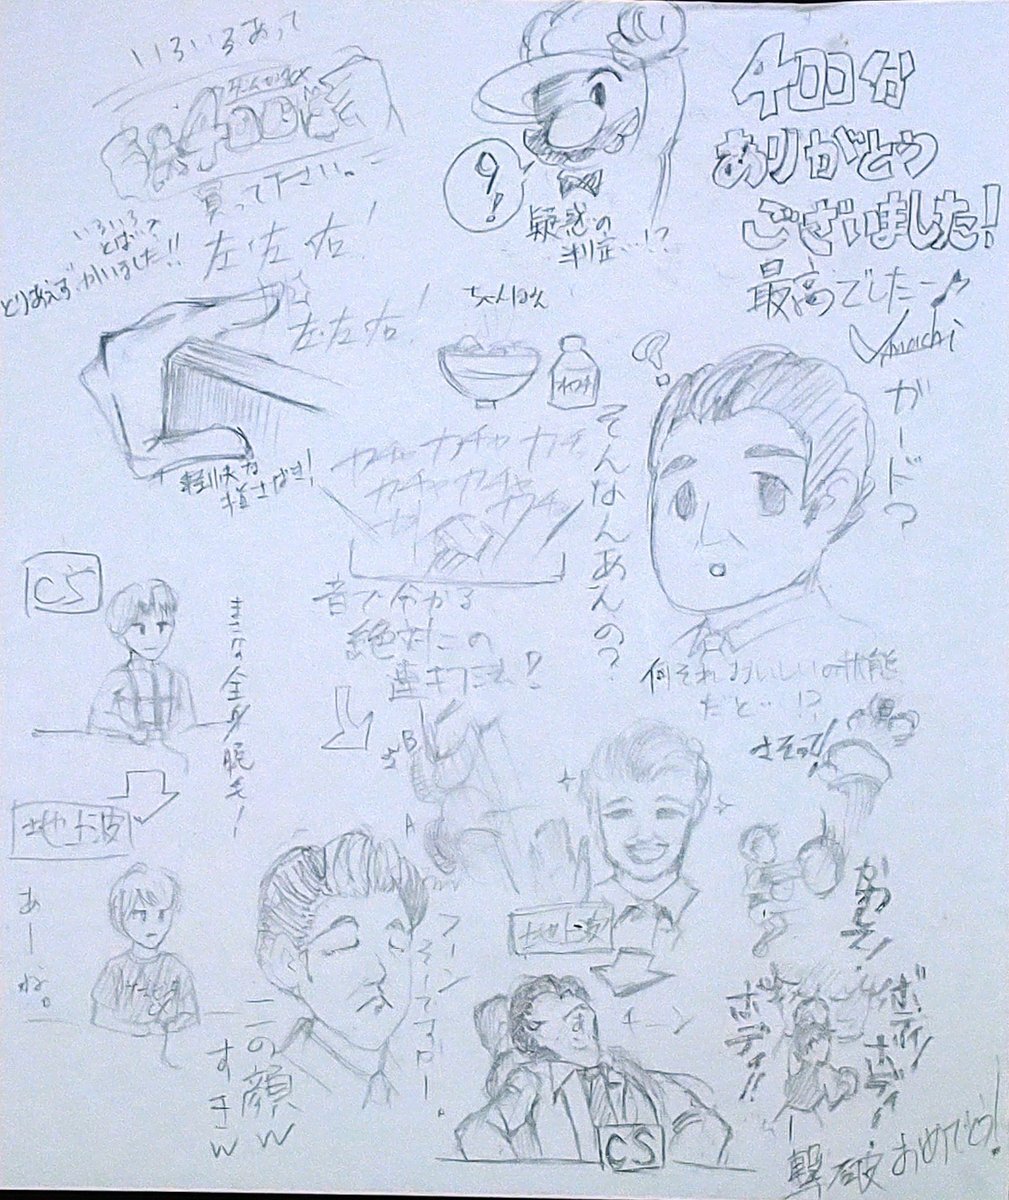 いろいろあって
400
買って下さい。
いろいろ
とりあえずかいました!!
左左右!
左左右!
9!
疑惑の
判定…!?
400回
ありがとう
ございました!
最高でしたー♪
ちゃんぽん
軽快な
指さばき!
カチャカチャカチ
カチャカチャ
カチャ
音で分かる
絶対この
連打だよ!
?
ガード?
そんなんあんの?
何それおいしいの状態
だと…!?
CS
まさな全身脱毛ー
地上波
あーね。
B
A
フーン
そーですかー。
この顔w
すきw
地上波
チーン
CS
さそって!
かわして!
ボディ!
ボディ!
ボディ!!
撃破
おめでとう!